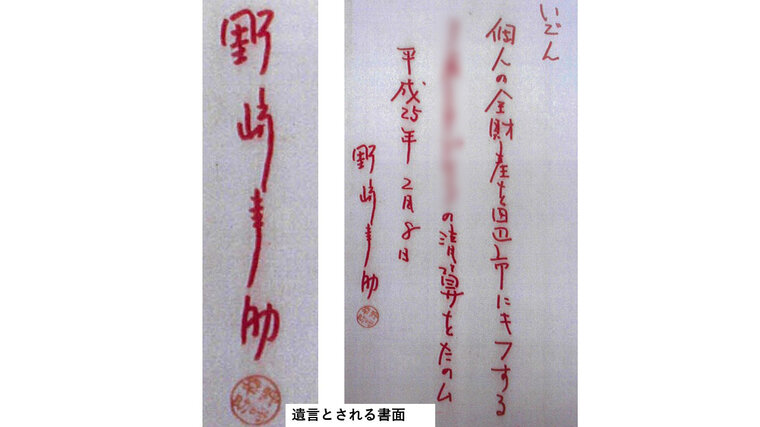 いごん
個人の全財産を田辺市にキフする
の清算をたのム
平成25年2月8日
野崎幸助
野崎幸助
遺言とされる書面